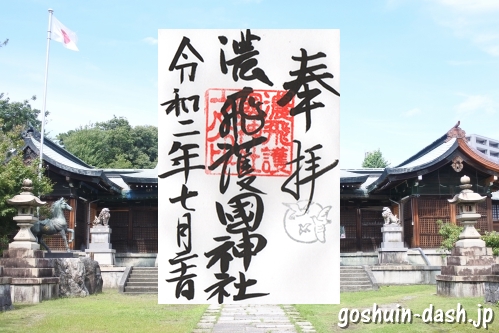 奉拝
濃飛護國神社
令和二年七月
濃飛護
goshuin-dash.jp